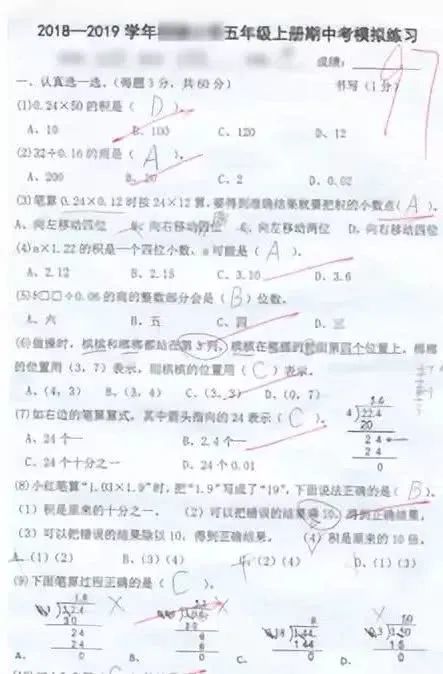 2018—2019 学年 五年级上册期中考模拟练习
成绩：
97
一、认真选一选。（每题 3 分，共 60 分） 书写（1 分）
(1)0.24×50 的积是（ D ）。
A、10 B、100 C、120 D、12
(2)32÷0.16 的商是（ A ）。
A、200 B、20 C、2 D、0.02
(3)笔算 0.24×0.12 时按 24×12 算，要得到准确结果就要把积的小数点（ A ）。
A、向左移动四位 B、向右移动四位 C、向左移动两位 D、向右移动四位
(4)a×1.22 的积是一个四位小数，a 可能是（ A ）。
A、2.12 B、2.15 C、3.10 D、3.6
(5)8□□÷0.06 的商的整数部分会是（ B ）位数。
A、六 B、五 C、四 D、三
(6)做操时，槟槟和榔榔都站在第 3 列，槟槟在榔榔的前面第四个位置上，榔榔
的位置用（3，7）表示，则槟槟的位置用（ C ）表示。
A、（4，3） B、（3，4） C、（3，3） D、（0，7）
(7)如右边的笔算算式，其中箭头指向的 24 表示（ C ）。
A、24 个一 B、2.4 个一
C、24 个十分之一 D、24 个 0.01
4 22.4
20
24
24
0
(8)小红笔算“1.03×1.9”时，把“1.9”写成了“19”，下面说法正确的是（ B ）。
（1）积是原来的十分之一。 （2）可以把错误的结果乘 10，得到正确结果。
（3）可以把错误的结果除以 10，得到正确结果。 （4）积是原来的 10 倍。
A、（1）（2） B、（3）（4） C、（2）（4） D、（1）（3）
(9)下面笔算过程正确的是（ C ）。
A. B. C. D.